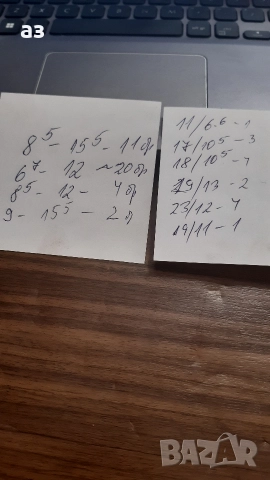 аз
8⁵ - 15⁵ - 11 бр
6⁷ - 12 ~ 20 бр
8⁵ - 12 - 4 бр
9 - 15⁵ - 2 бр
11/6.6 - 1
17/10⁵ - 3
18/10⁵ - 1
19/13 - 2
23/12 - 4
19/11 - 1
BAZAR